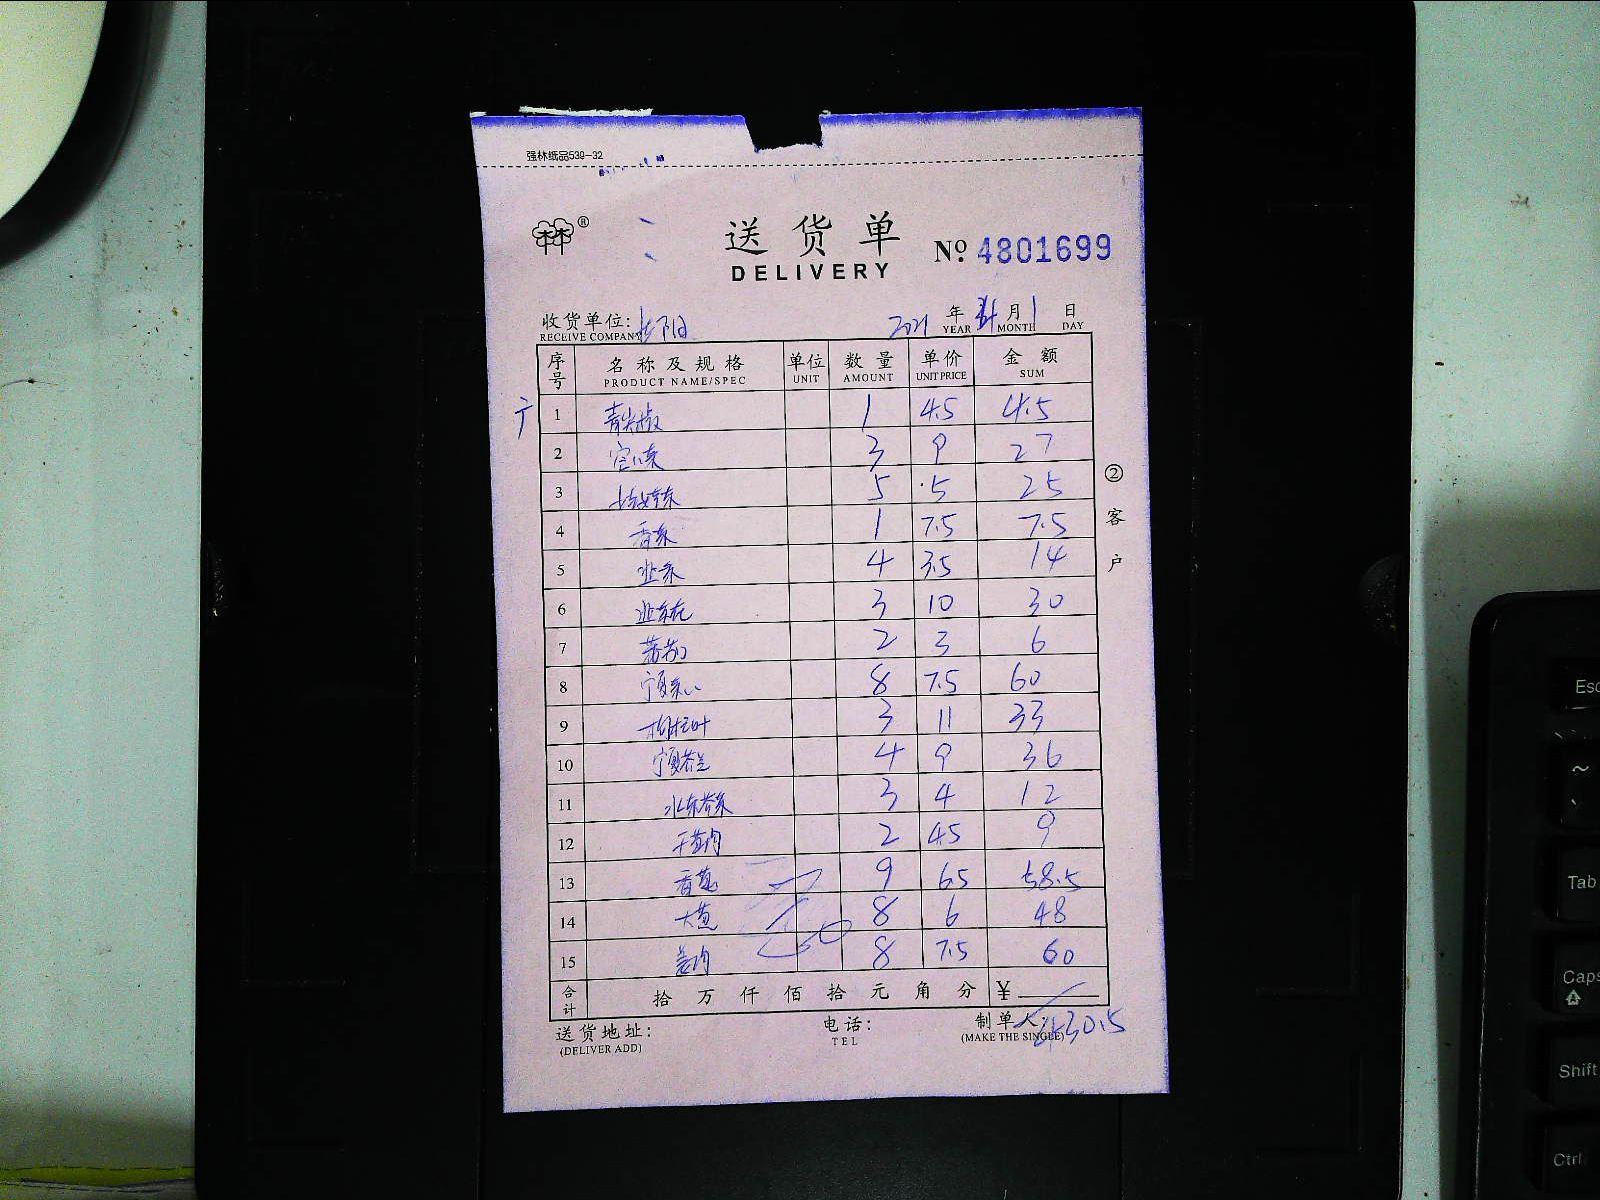 强林纸品539-32
® 送货单 № 4801699
DELIVERY
收货单位: 2021 年 月 1 日
RECEIVE COMPANY YEAR MONTH DAY
序号 名称及规格 单位 数量 单价 金额
PRODUCT NAME/SPEC UNIT AMOUNT UNIT PRICE SUM
1 青尖椒 1 4.5 4.5
2 空心菜 3 9 27
3 5 5 25
4 香菜 1 7.5 7.5
5 韭菜 4 3.5 14
6 韭菜花 3 10 30
7 2 3 6
8 宁夏菜心 8 7.5 60
9 3 11 33
10 宁夏芥兰 4 9 36
11 水东芥菜 3 4 12
12 干葱肉 2 4.5 9
13 香葱 9 6.5 58.5
14 大葱 8 6 48
15 姜肉 8 7.5 60
合计 拾 万 仟 佰 拾 元 角 分 ¥
430.5
送货地址: 电话: 制单人:
(DELIVER ADD) TEL (MAKE THE SINGLE)
② 客户
Esc
~
Tab
Caps
Shift
Ctrl